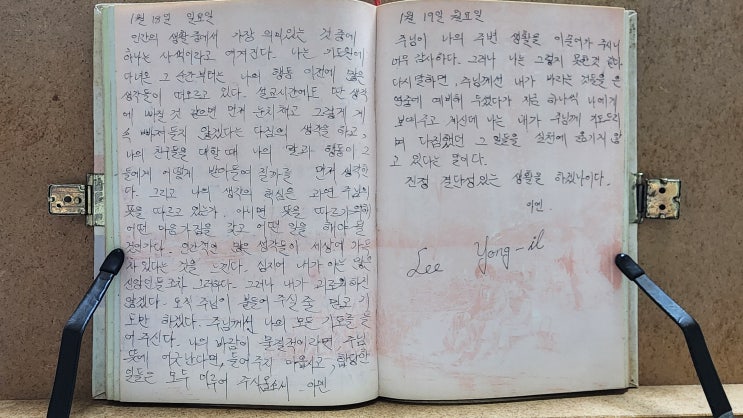 1월 18일 일요일
인간의 생활 중에서 가장 의미있는 것 중에
하나는 사색이라고 여겨진다. 나는 기도원에
다녀온 그 순간부터는 나의 행동 이전에 많은
생각들이 떠오르고 있다. 설교시간에도 딴 생각
에 빠질 것 같으면 먼저 눈치채고 그렇게 계
속 빠져들지 않겠다는 다짐의 생각을 하고,
나의 친구들을 대할 때 나의 말과 행동이 그
들에게 어떻게 받아들여 질까를 먼저 생각한
다. 그리고 나의 생각의 핵심은 과연 주님의
뜻을 따르고 있는가. 아니면 뜻을 따르기 위해
어떤 마음가짐을 갖고 어떤 일을 해야 될
것인가다. 인간적인 많은 생각들이 세상에 가득
차있다는 것을 느낀다. 심지어 내가 아는 많은
신앙인들조차 그러하다. 그러나 내가 괴로워하진
않겠다. 오직 주님이 붙들어 주실 줄 믿고 기
도만 하겠다. 주님께선 나의 모든 기도를 들
어주신다. 나의 바람이 불결적이라면 주님
뜻에 어긋난다면, 들어주지 마옵시고, 합당한
일들은 모두 이루어 주시옵소서 아멘
1월 19일 월요일
주님이 나의 주변 생활을 이끌어가 주시니
너무 감사하다. 그러나 나는 그렇지 못한것 같다
다시말하면, 주님께선 내가 바라는 것들을 은
연중에 예비해 두셨다가 지금 하나씩 나에게
보여주고 계신데 나는 내가 주님께 기도드리
며 다짐했던 그 일들을 실천에 옮기지 않
고 있다는 말이다.
진정 결단성있는 생활을 하겠나이다.
아멘.
Lee Yong-il